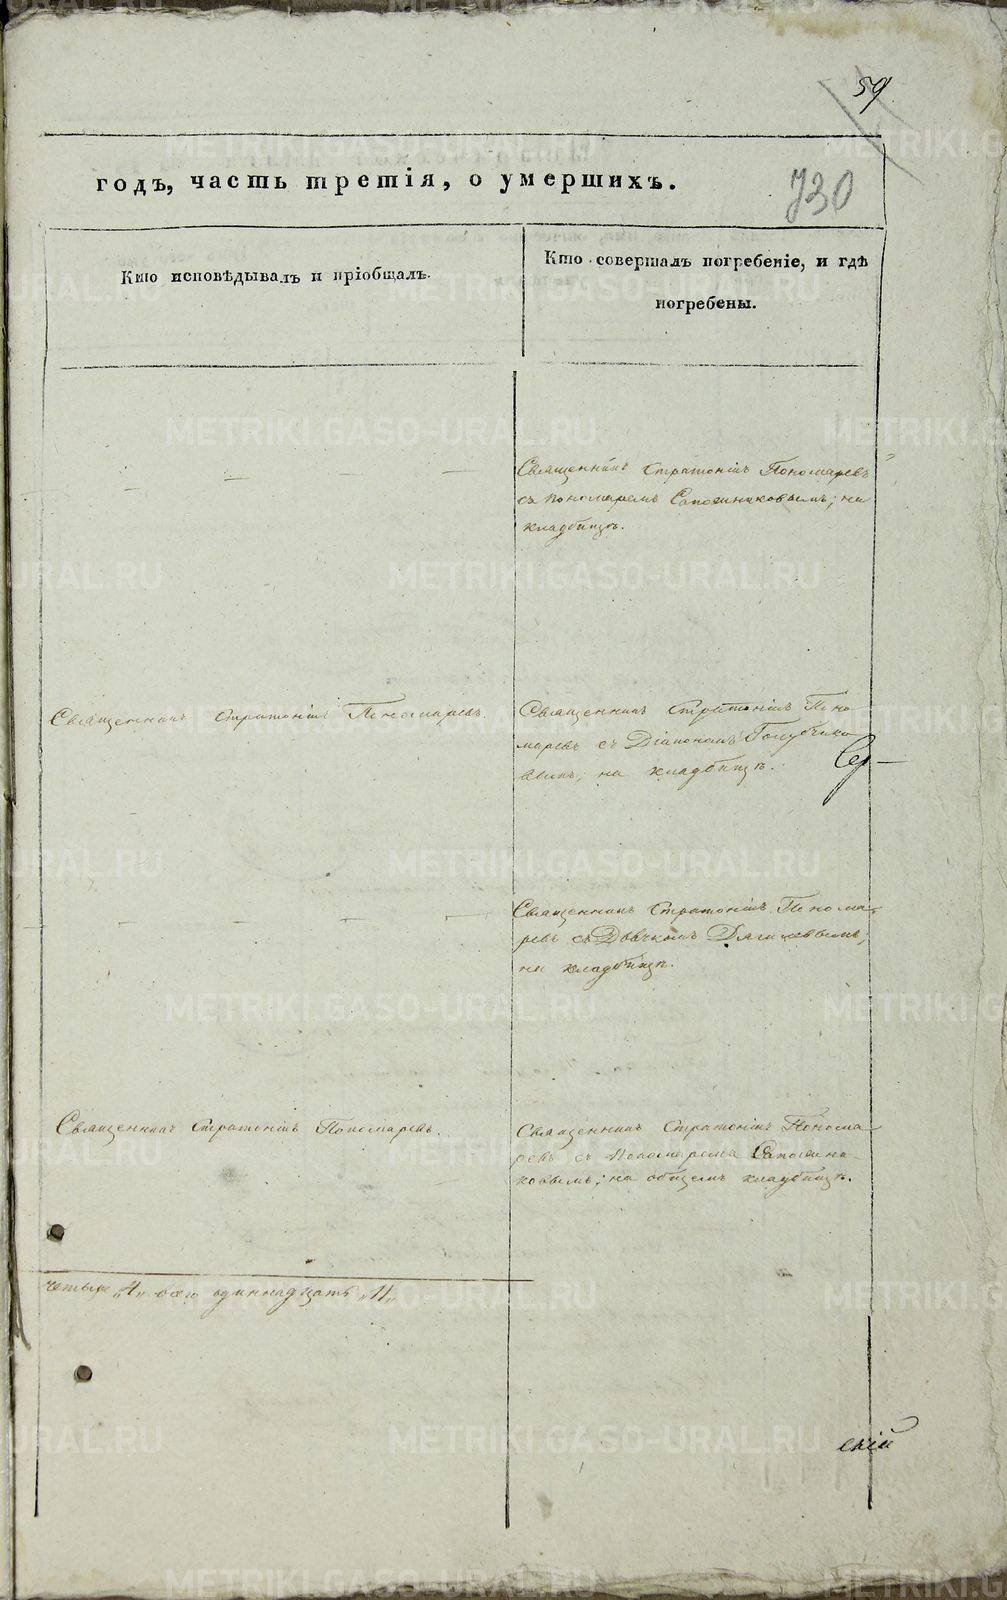 59
730
годъ, часть третія, о умершихъ.
Кто исповѣдывалъ и пріобщалъ.
Кто совершалъ погребеніе, и гдѣ
погребены.
Священникъ Стратоникъ Пономаревъ
съ пономаремъ Сапожниковымъ; на
кладбищѣ.
Священникъ Стратоникъ Пономаревъ.
Священникъ Стратоникъ Поно
маревъ съ Діакономъ Голубчико
вымъ, на кладбищѣ.
Сер-
Священникъ Стратоникъ Понома-
ревъ съ Дьячкомъ Дягилевымъ;
на кладбищѣ.
Священникъ Стратоникъ Пономаревъ.
Священникъ Стратоникъ Понома-
ревъ съ Пономаремъ Сапожни-
ковымъ; на общемъ кладбищѣ.
четыре „4„ всего одиннадцать „11„
скій
METRIKI.GASO-URAL.RU